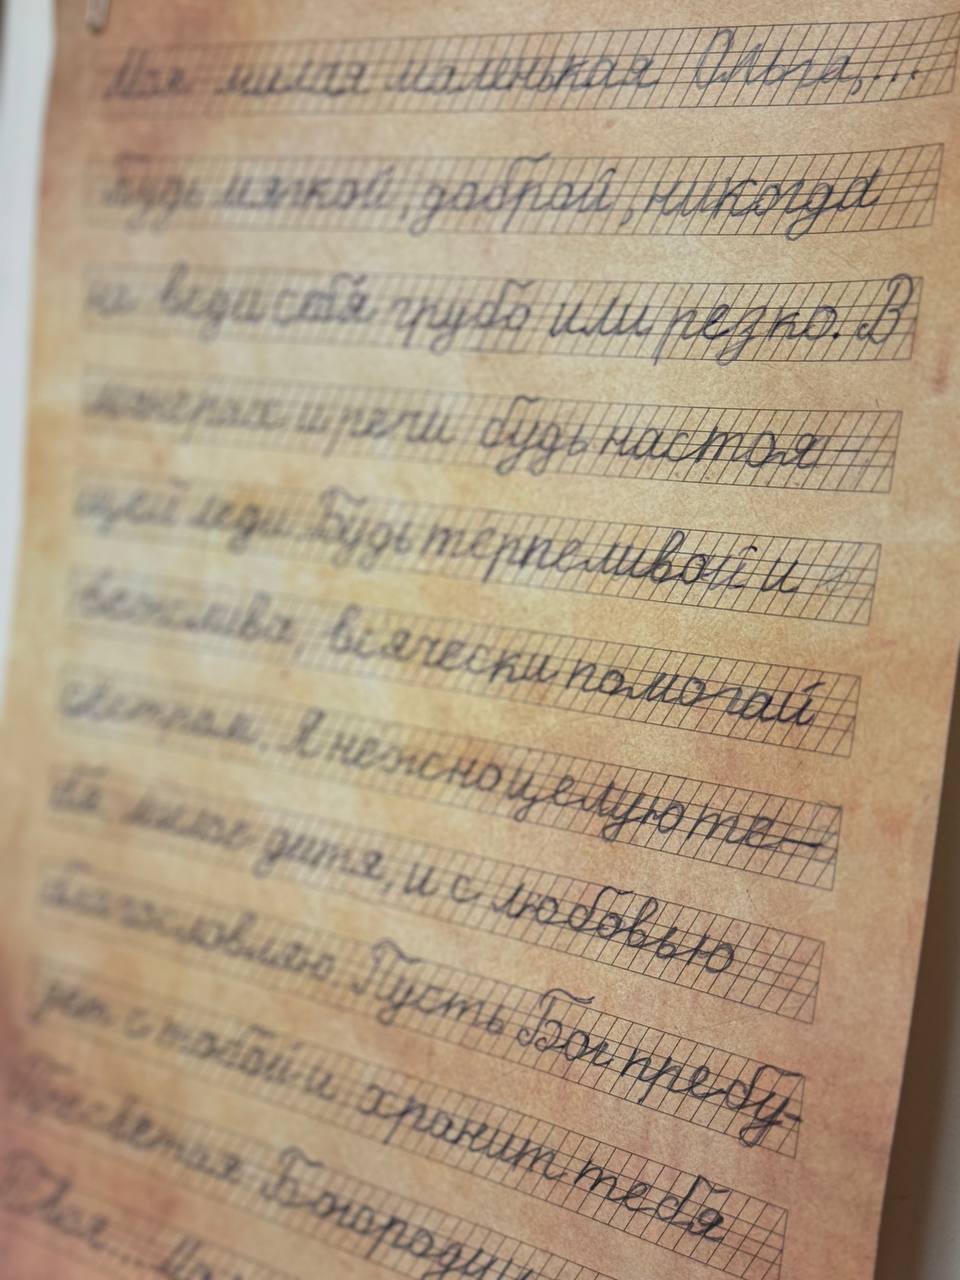 Моя милая маленькая Ольга,...
Будь мягкой, доброй, никогда
не веди себя грубо или резко. В
манерах и речи будь настоя-
щей леди. Будь терпеливой и
вежлива, всячески помогай
сестрам. Я нежно целую те-
бя милое дитя, и с любовью
благословляю. Пусть Бог пребу-
дет с тобой и хранит тебя
Пресвятая Богороди
Твоя...